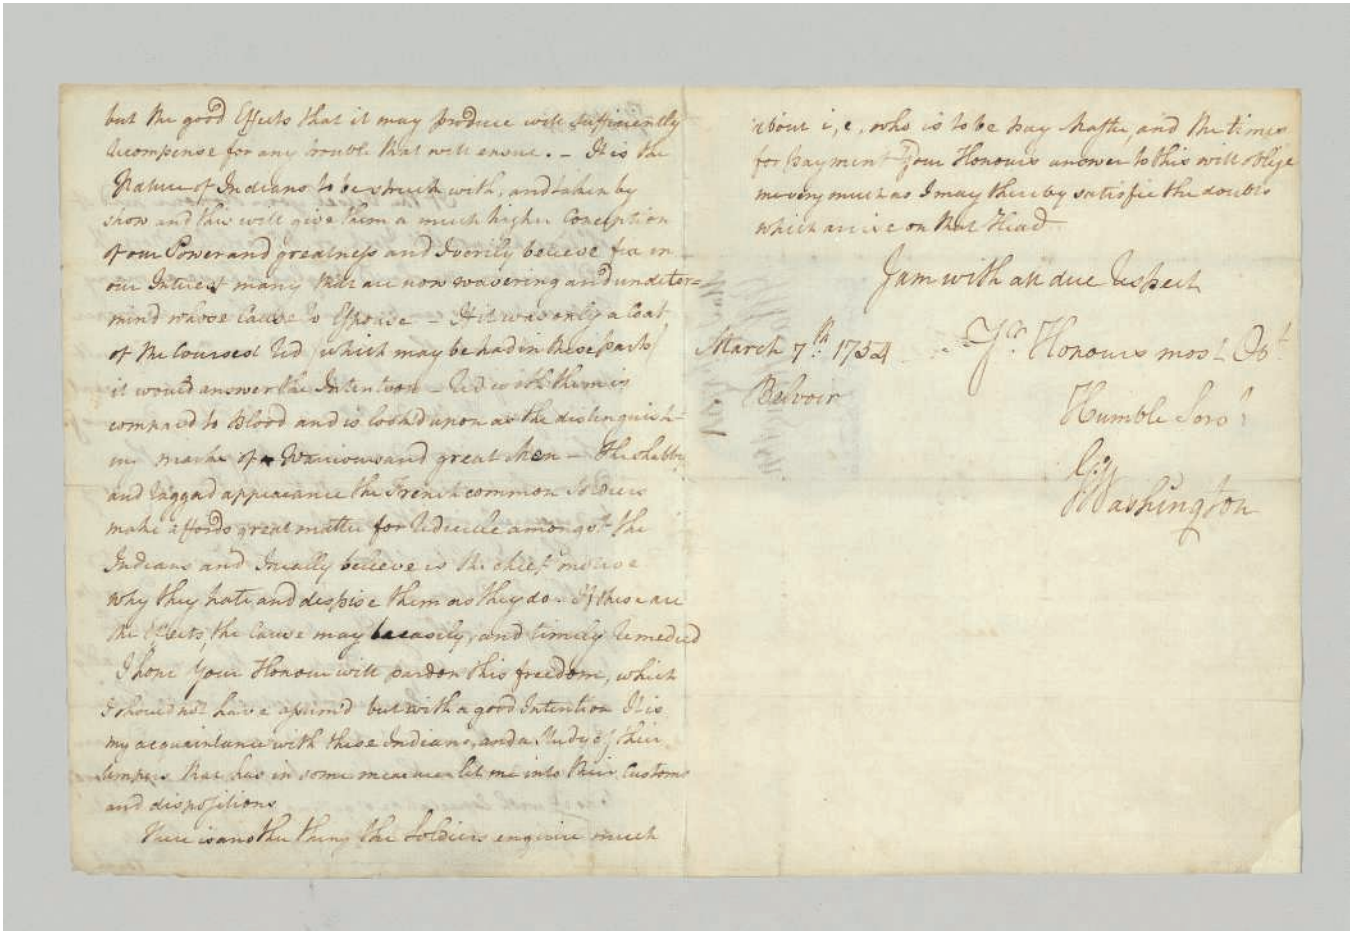 but the good Effects that it may produce will sufficiently
recompense for any trouble that will ensue. – It is the
Nature of Indians to be struck with, and taken by
show and this will give them a much higher Conception
of our Power and greatness and I verily believe fix in
our Interest many that are now wavering and undeter=
min'd whose Cause to Espouse – If it was only a Coat
of the Coursest Red (which may be had in these parts)
it would answer the Intention – Red with them is
compared to Blood and is look'd upon as the distinguish-
ing marks of Warriours and great Men – The shabby
and ragged appearance the French common Soldiers
make affords great matter for ridicule amongst the
Indians and I really believe is the chief motive
why they hate and despise them as they do. If these are
the Effects, the Cause may be easily, and timely remedied
I hope Your Honour will pardon this freedom, which
I should not have assum'd but with a good Intention It is
my acquaintance with these Indians, and a Study of their
tempers that has in some measure let me into their Customs
and dispositions
There is another thing the Soldiers enquire much
about i, e, who is to be pay Master, and the times
for payment Your Honours answer to this will oblige
me very much as I may thereby satisfie the doubts
which arise on that Head
I am with all due respect
Yr Honours most Obt
March 7th: 1754
Humble Servt
Belvoir
Go
Washington